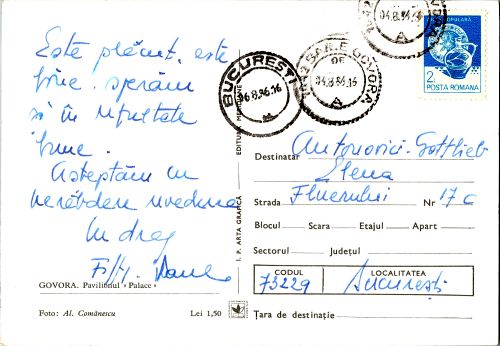 Este plăcut, este
bine, sperăm
și în rezultate
bune.
Așteptăm cu
nerăbdare revederea
Cu drag
GOVORA. Pavilionul « Palace »
Foto: Al. Comănescu
Lei 1,50
EDITURA
I. P. ARTA GRAFICĂ
BUCUREȘTI
06.8.86.16
GOVORA
04.8.86.16
04.8.86.16
POPULARĂ
2 L
POSTA ROMANA
Destinatar Antonovici-Gottlieb
Elena
Strada Fluerului Nr 17 C
Blocul Scara Etajul Apart
Sectorul Județul
CODUL LOCALITATEA
73229 București
Țara de destinație